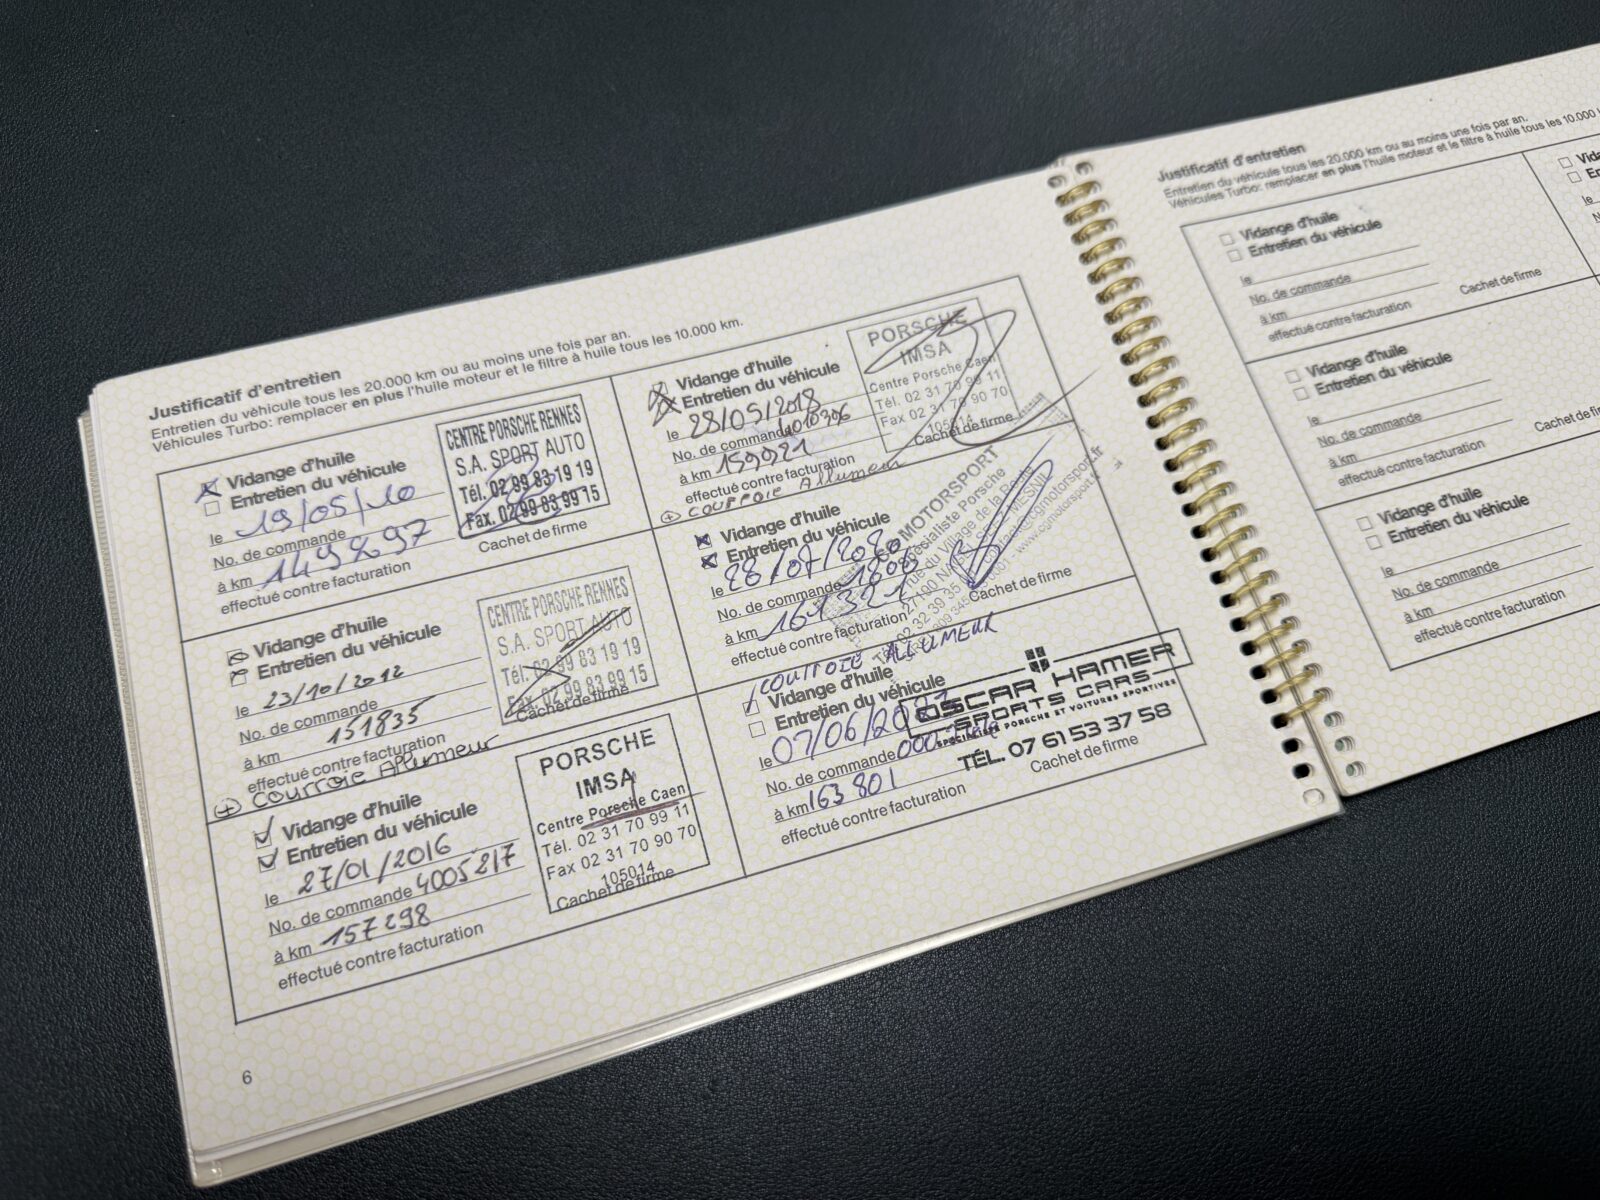 Justificatif d'entretien
Entretien du véhicule tous les 20.000 km ou au moins une fois par an.
Véhicules Turbo: remplacer en plus l'huile moteur et le filtre à huile tous les 10.000 km.
Vidange d'huile
Entretien du véhicule
le 19/05/10
No. de commande
à km 149897
effectué contre facturation
CENTRE PORSCHE RENNES
S.A. SPORT AUTO
Tél. 02 99 83 19 19
Fax. 02 99 83 99 15
Cachet de firme
Vidange d'huile
Entretien du véhicule
le 23/10/2012
No. de commande
à km 151835
effectué contre facturation
+ courroie Allumeur
CENTRE PORSCHE RENNES
S.A. SPORT AUTO
Tél. 02 99 83 19 19
Fax. 02 99 83 99 15
Cachet de firme
Vidange d'huile
Entretien du véhicule
le 27/01/2016
No. de commande 4005217
à km 157298
effectué contre facturation
PORSCHE
IMSA
Centre Porsche Caen
Tél. 02 31 70 99 11
Fax 02 31 70 90 70
105014
Cachet de firme
6
Vidange d'huile
Entretien du véhicule
le 28/05/2018
No. de commande 4010396
à km 159921
effectué contre facturation
+ courroie Allumeur
PORSCHE
IMSA
Centre Porsche Caen
Tél. 02 31 70 99 11
Fax 02 31 70 90 70
105014
Cachet de firme
Vidange d'huile
Entretien du véhicule
le 28/07/2020
No. de commande 1806
à km 161321
effectué contre facturation
courroie ALLUMEUR
MOTORSPORT
Spécialiste Porsche
rue du Village de la
27190
02 32 39 35
Cachet de firme
Vidange d'huile
Entretien du véhicule
le 07/06/2021
No. de commande
à km 163 801
effectué contre facturation
OSCAR HAMER
SPORTS CARS
SPECIALISTE PORSCHE ET VOITURES SPORTIVES
TÉL. 07 61 53 37 58
Cachet de firme
Justificatif d'entretien
Entretien du véhicule tous les 20.000 km ou au moins une fois par an.
Véhicules Turbo: remplacer en plus l'huile moteur et le filtre à huile tous les 10.000
Vidange d'huile
Entretien du véhicule
le
No. de commande
à km
effectué contre facturation
Cachet de firme
Vidange d'huile
Entretien du véhicule
le
No. de commande
à km
effectué contre facturation
Cachet de
Vidange d'huile
Entretien du véhicule
le
No. de commande
à km
effectué contre facturation
le